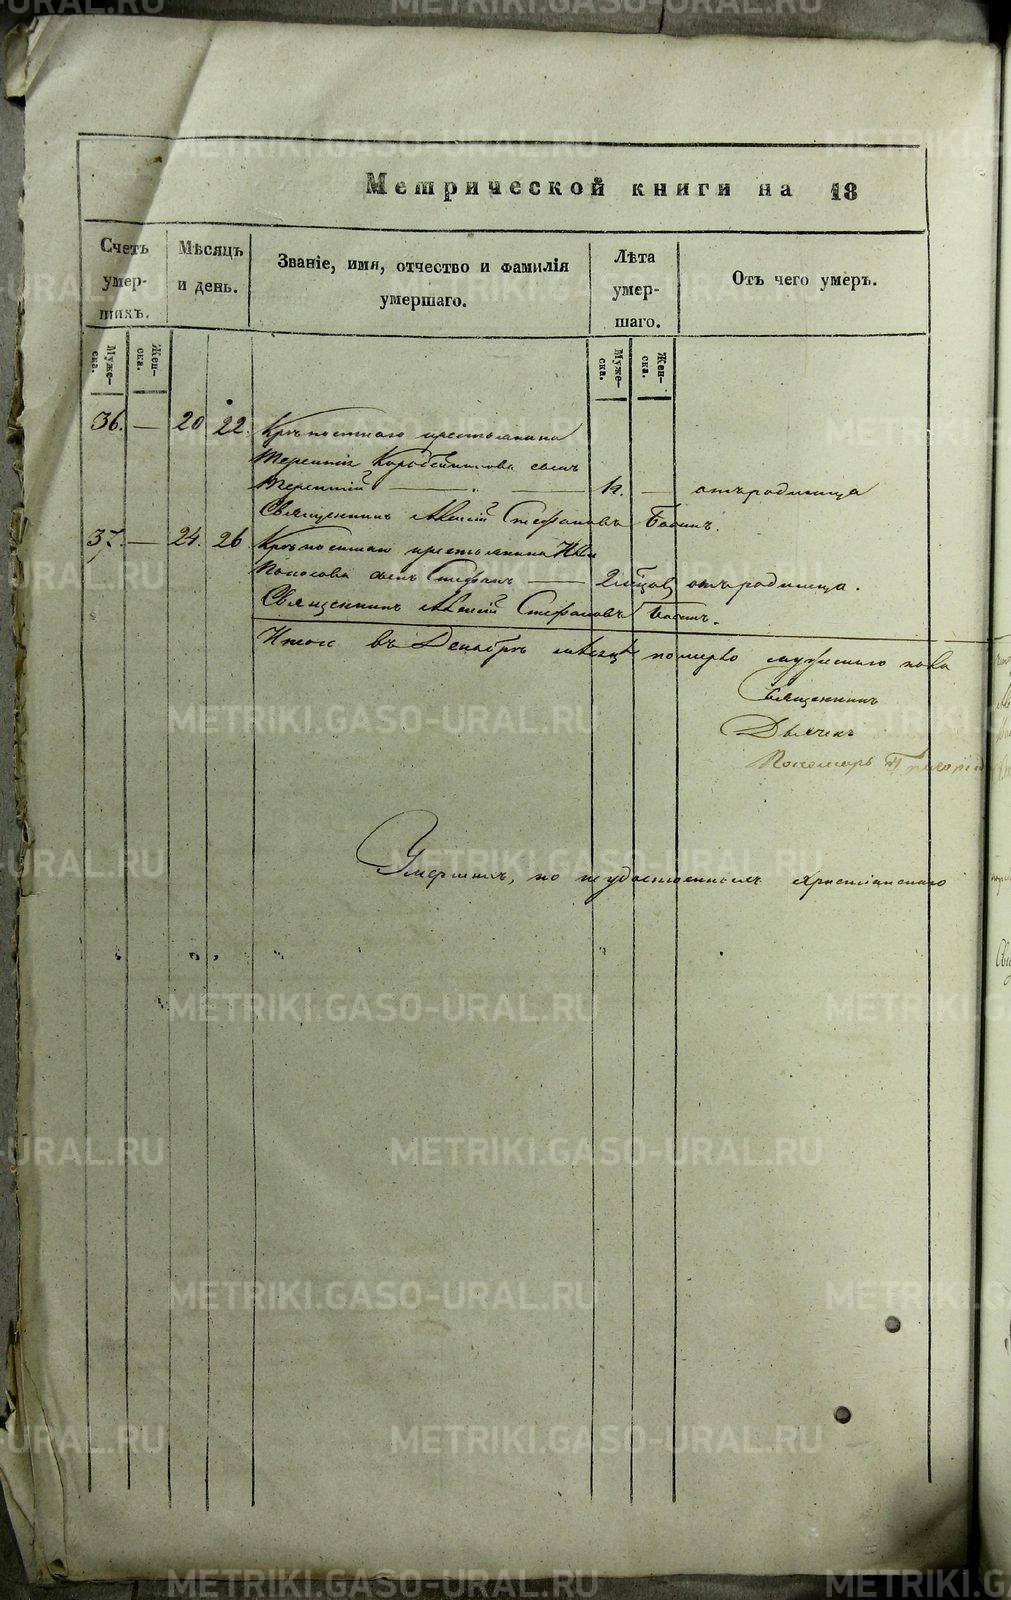 Метрической книги на 18
Счетъ умер- шихъ.
Мѣсяцъ и день.
Званіе, имя, отчество и фамилія умершаго.
Лѣта умер- шаго.
Отъ чего умеръ.
Муже- ска.
Жен- ска.
Муже- ска.
Жен- ска.
36. — 20 22. Крѣпостнаго крестьянина
Терентія Коробейникова сынъ
Терентій — " — — отъ родимца
Священникъ Алексій Стефановъ Бабинъ.
37. — 24. 26 Крѣпостнаго крестьянина
сынъ Стефанъ — 2 отъ родимца.
Священникъ Алексій Стефановъ Бабинъ.
Итого въ Декабрѣ мѣсяцѣ померло мужескаго пола
Священникъ
Дьячекъ
Пономарь Григорій
Умершихъ, но не удостоенныхъ Христіанскаго
METRIKI.GASO-URAL.RU